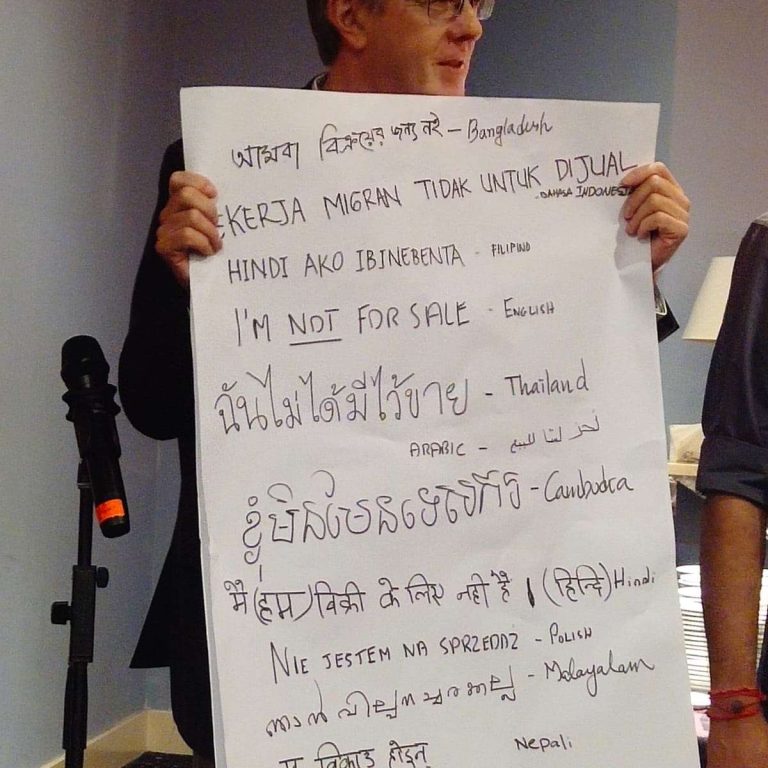 আমরা বিক্রয়ের জন্য নই – Bangladesh
KERJA MIGRAN TIDAK UNTUK DIJUAL
- BAHASA INDONESIA
HINDI AKO IBINEBENTA - FILIPINO
I'M NOT FOR SALE - ENGLISH
ฉันไม่ได้มีไว้ขาย - Thailand
ARABIC - نحن لسنا للبيع
ខ្ញុំមិនមែនទេ - Cambodia
मै (हम) बिक्री के लिए नही है । (हिन्दि) Hindi
NIE JESTEM NA SPRZEDAZ - POLISH
ഞാൻ - Malayalam
म बिकाउ होइन Nepali